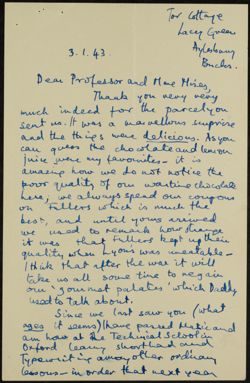 Tor Cottage
Lacey Green
Aylesbury
Bucks.
3.1.43.
Dear Professor and Mme Mises,
Thank you very very
much indeed for the parcel you
sent us. It was a marvellous surprise
and the things were delicious. As you
can guess the chocolate and lemon
juice were my favourites - it is
amazing how we do not notice the
poor quality of our wartime chocolate
here; we always spend our coupons
on Fullers which is much the
best, and until yours arrived
we used to remark how strange
it was that Fullers kept up their
quality when - yours was uneatable -
I think that after the war it will
take us all some time to regain
our 'gourmet palates' which Daddy
used to talk about.
Since we last saw you (what
ages it seems) I have passed Matric and
am now at the Technical School in
Oxford learning shorthand and
Typewriting among other ordinary
lessons - in order that next year